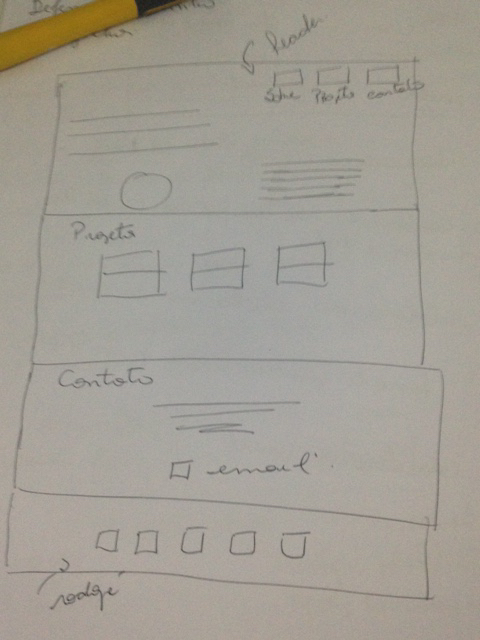 Header
Sobre Projeto Contato
Projetos
Contato
email
rodapé